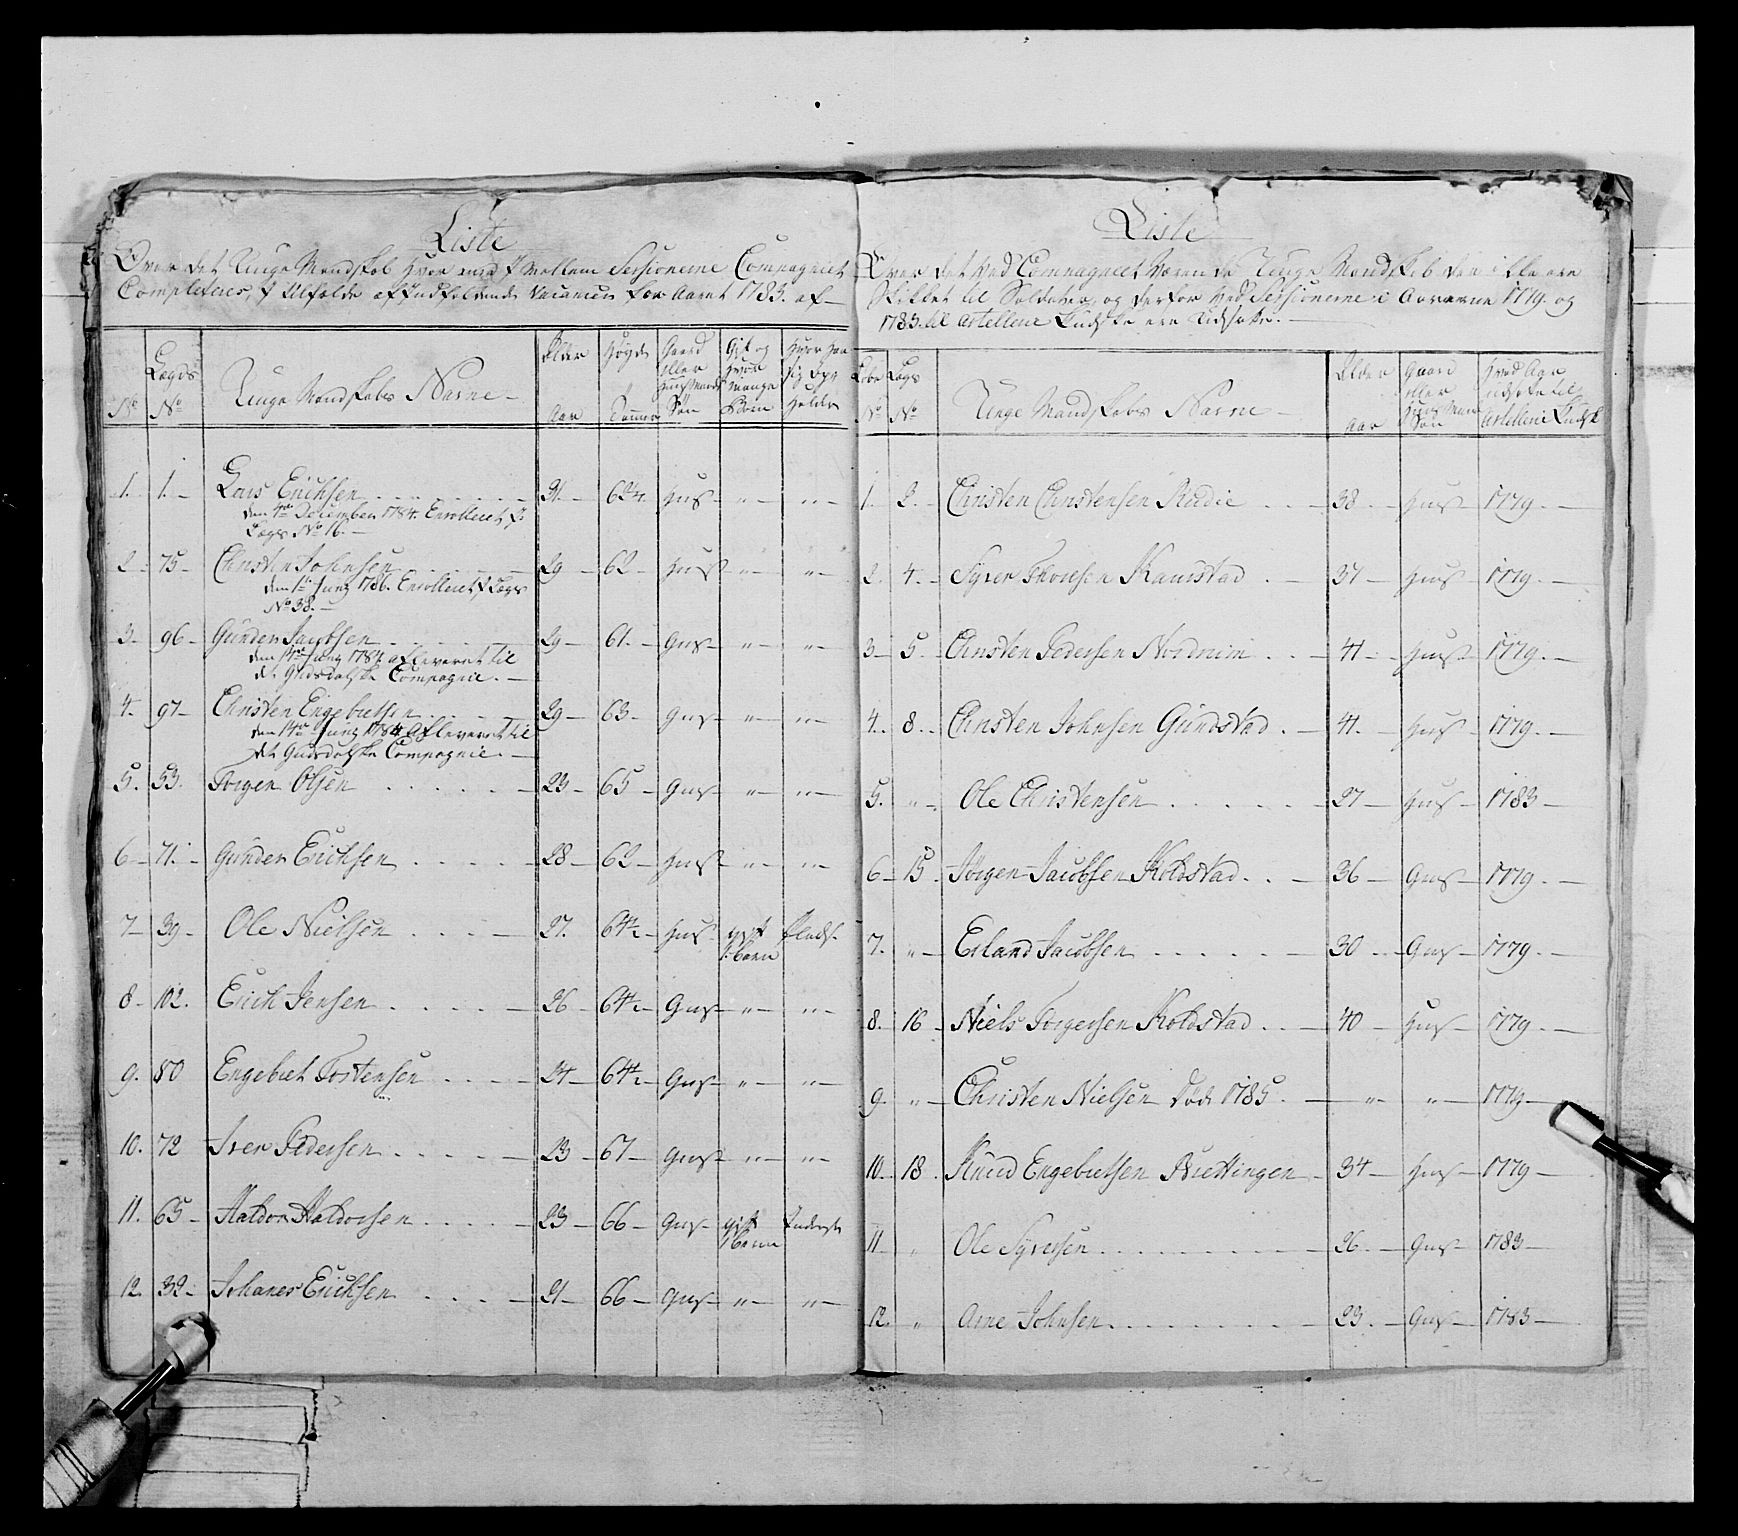 Liste
Over det Unge Mandskab hvor med i mellem Sessionerne Compagniet
Completeres, i tilfælde af Indfaldende Vacancer for Aaret 1783. af
No
Lægds No
Unge Mandskabs Navne
Alder Aar
Høyde Tommer
Gaard eller Huusmands Søn
Gift og hvor mange Børn
Hvor han sig op holder
1. 1. Lars Erichsen 31 62 1/4 Huus " "
den 4de December 1784. Enrolleret f:
Lægs No 16.
2 75 Christen Johnsen 29 62 Huus " "
den 1te Juny 1786. Enrolleret f Lægs
No 38.
3 96 Gunder Jacobsen 29 61 Gus " "
den 14de Juny 1784 afleveret til
det Gudsdalske Compagnie.
4. 97 Christen Engebretsen 29 63 Gus " "
den 14de Juny 1784 Afleveret til
det Gudsdalske Compagnie.
5. 53. Torgen Olsen 23 65 Gus " "
6 71. Gunder Erichsen 28 62 Huus " "
7 39 Ole Nielsen 27. 64 1/2 Huus gift Plads
1. barn
8 102. Erich Jensen 26 64 1/2 Gus " "
9. 80 Engebret Tostensen 24 64 1/2 Gus " "
10. 72 Iver Pedersen 23 67 Gus " "
11. 65 Haldor Haldorsen 23 66 Gus gift Inderste
1 barn
12. 32 Johanes Erichsen 21 66 Gus " "
Liste
Over det ved Compagniet Værende Unge Mandskab den ikke ere
skikket til Soldater, og derfor ved Sessionerne i Aarerne 1779. og
1783. til Artellerie Kudske ere Udsatte.
Løbe No
Lægs No
Unge Mandskabs Navne
Alder Aar
Gaard eller Huusmands Søn
Hvad Aar udsat til Artellerie Kudsk
1. 2. Christen Christensen Rudie 38 Huus 1779.
2. 4. Syver Thoresen Kamstad 37 Huus 1779.
3 5 Christen Pedersen Nordrum 41 Huus 1779.
4. 8. Christen Johnsen Gundstad 41. Huus 1779.
5. " Ole Christensen 27 Huus 1783
6 15. Jørgen Jacobsen Koldstad 36 Gus 1779.
7. " Erland Jacobsen 30 Gus 1779.
8. 16 Niels Torgersen Koldstad 40 Huus 1779.
9 " Christen Nielsen Død 1785. " " 1779
10. 18. Knud Engebretsen 34 Huus 1779
11 " Ole Syversen 26. Gus 1783
12. " Arne Johnsen 23. Gus 1783